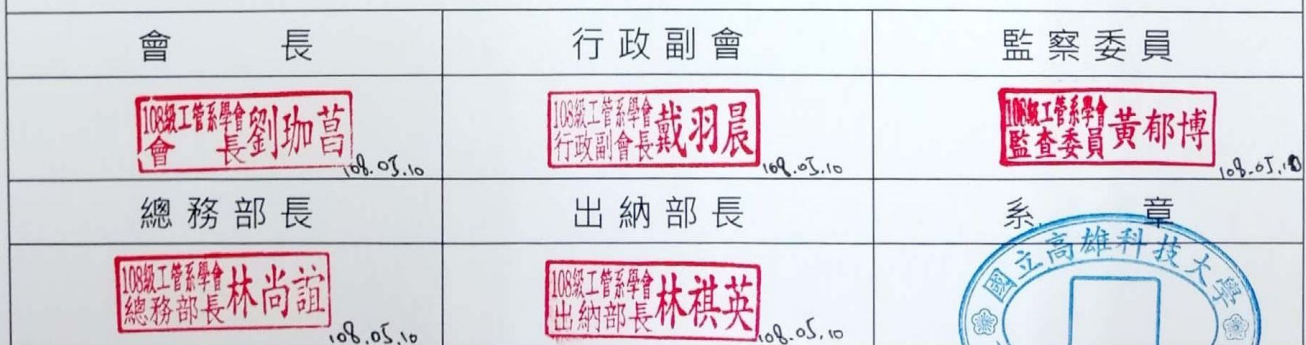 會長
行政副會
監察委員
108級工管系學會
會長
劉珈菖
108.05.10
108級工管系學會
行政副會長
戴羽晨
108.05.10
108級工管系學會
監查委員
黃郁博
108.05.10
總務部長
出納部長
系章
108級工管系學會
總務部長
林尚誼
108.05.10
108級工管系學會
出納部長
林祺英
108.05.10
國立高雄科技大學